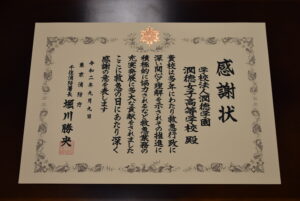 感謝状
学校法人潤徳学園
潤徳女子高等学校 殿
貴校は多年にわたり救急行政に
深い関心と理解を示されその推進に
積極的に協力されるなど救急業務の
充実発展に多大な貢献をされました
ここに救急の日にあたり深く
感謝の意を表します
令和二年九月九日
東京消防庁
千住消防署長 堀川勝央